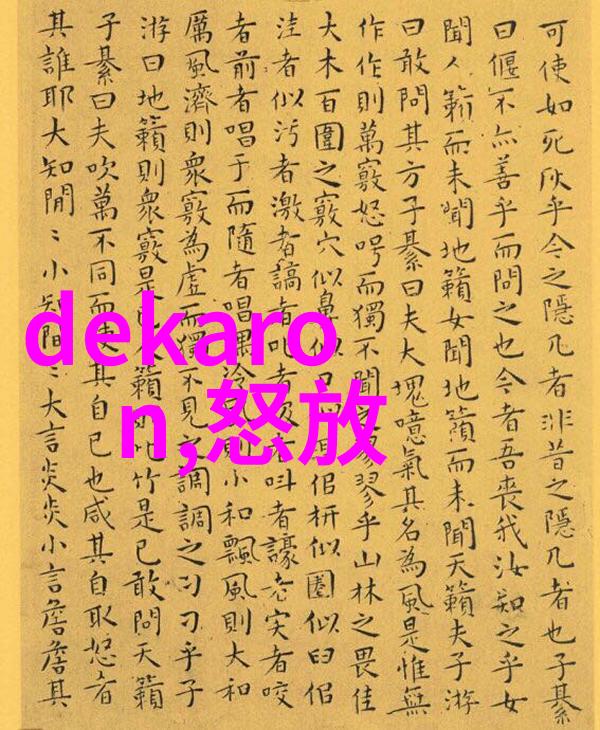 可使如死灰乎今之隱几者非昔之隱几者也子綦
曰偃不亦善乎而問之也今者吾喪我汝知之乎女
聞人籟而未聞地籟女聞地籟而未聞天籟夫子游
曰敢問其方子綦曰夫大塊噫氣其名為風是惟無
作作則萬竅怒呺而獨不聞之翏翏乎山林之畏佳
大木百圍之竅穴似鼻似口似耳佀枅似圈似臼佀
洼者似污者激者謞者叱者吸者叫者譹者宎者咬
者前者唱于而隨者唱喁泠風則小和飄風則大和
厲風濟則衆竅為虛而獨不見之調調之刁刁乎子
游曰地籟則衆竅是已人籟則比竹是已敢問天籟
子綦曰夫吹萬不同而使其自已也咸其自取怒者
其誰耶大知閒〻小知間〻大言炎炎小言詹詹其
dekaro
n,怒放